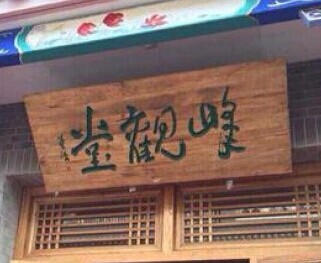 峰觀堂